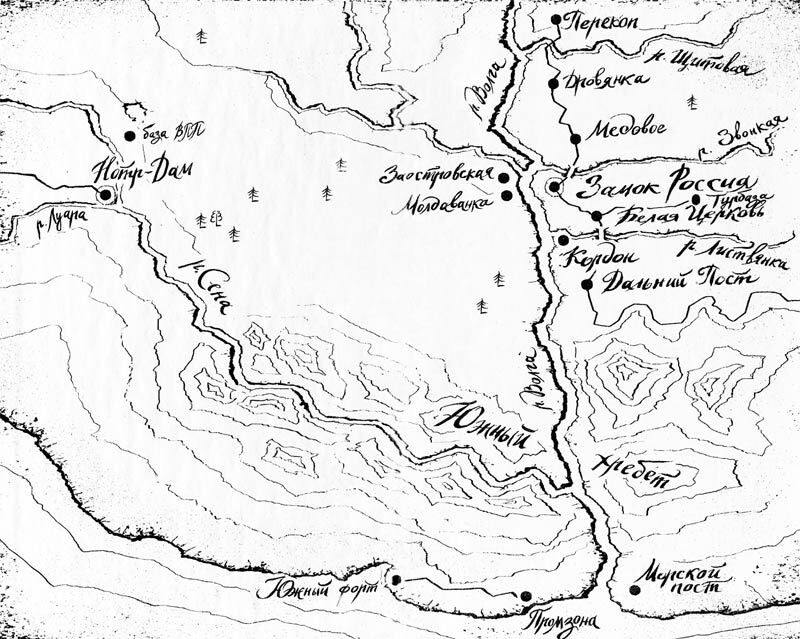 Перекоп
р. Щитовая
р. Волга
Дровянка
Медовое
р. Звонкая
база ВПП
Нотр-Дам
Заостровская
Замок Россия
Молдаванка
Турбаза
Белая Церковь
р. Луара
Кордон
р. Листвянка
р. Сена
Дальний Пост
р. Волга
Южный
Хребет
Южный форт
Морской
пост
Промзона